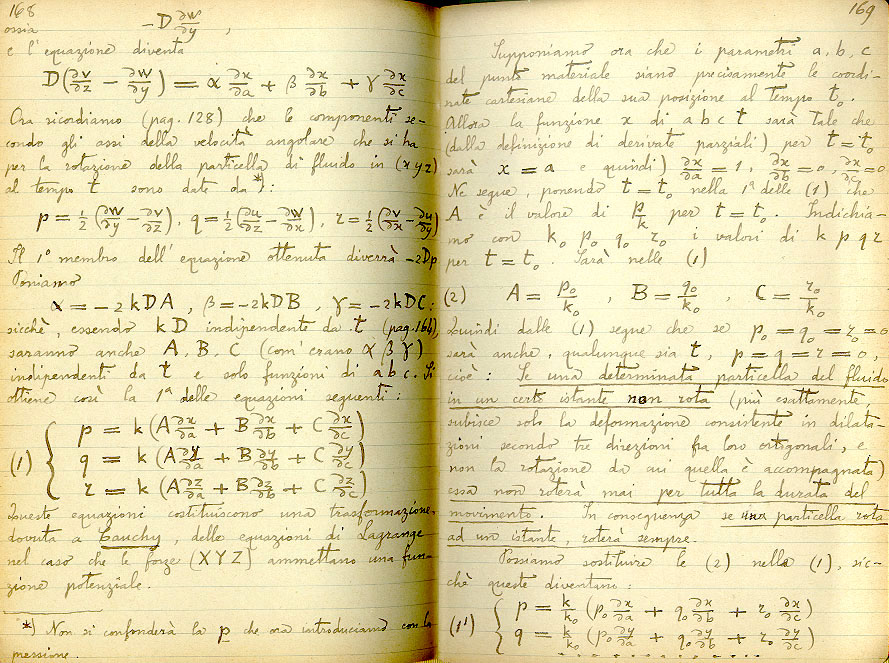 168
ossia −D ∂w/∂y ,
e l'equazione diventa
D(∂v/∂z − ∂w/∂y) = α ∂x/∂a + β ∂x/∂b + γ ∂x/∂c
Ora ricordiamo (pag. 128) che le componenti se-
condo gli assi della velocità angolare che si ha
per la rotazione della particella di fluido in (x y z)
al tempo t sono date da *):
p = ½ (∂w/∂y − ∂v/∂z), q = ½ (∂u/∂z − ∂w/∂x), r = ½ (∂v/∂x − ∂u/∂y)
Il 1º membro dell'equazione ottenuta diverrà −2Dp
Poniamo
α = −2kDA , β = −2kDB , γ = −2kDC :
sicchè, essendo kD indipendente da t (pag. 164),
saranno anche A, B, C (com'erano α β γ)
indipendenti da t e solo funzioni di a b c. Si
ottiene così la 1ª delle equazioni seguenti :
(1) { p = k (A ∂x/∂a + B ∂x/∂b + C ∂x/∂c)
q = k (A ∂y/∂a + B ∂y/∂b + C ∂y/∂c)
r = k (A ∂z/∂a + B ∂z/∂b + C ∂z/∂c)
Queste equazioni costituiscono una trasformazione,
dovuta a Cauchy, delle equazioni di Lagrange
nel caso che le forze (X Y Z) ammettano una fun-
zione potenziale.
*) Non si confonderà la p che ora introduciamo con la
pressione.
169
Supponiamo ora che i parametri a, b, c
del punto materiale siano precisamente le coordi-
nate cartesiane della sua posizione al tempo t₀.
Allora la funzione x di a b c t sarà tale che
(dalla definizione di derivate parziali) per t = t₀
sarà x = a e quindi) ∂x/∂a = 1, ∂x/∂b = 0, ∂x/∂c = 0
Ne segue, ponendo t = t₀ nella 1ª delle (1) che
A è il valore di p/k per t = t₀. Indichia-
mo con k₀ p₀ q₀ r₀ i valori di k p q r
per t = t₀. Sarà nelle (1)
(2) A = p₀/k₀ , B = q₀/k₀ , C = r₀/k₀
Quindi dalle (1) segue che se p₀ = q₀ = r₀ = 0
sarà anche, qualunque sia t, p = q = r = 0,
cioè : Se una determinata particella del fluido
in un certo istante non rota (più esattamente,
subisce solo la deformazione consistente in dilata-
zioni secondo tre direzioni fra loro ortogonali, e
non la rotazione da cui quella è accompagnata)
essa non roterà mai per tutta la durata del
movimento. In conseguenza se una particella rota
ad un istante, roterà sempre.
Possiamo sostituire le (2) nelle (1), sic-
chè queste diventano :
(1') { p = k/k₀ (p₀ ∂x/∂a + q₀ ∂x/∂b + r₀ ∂x/∂c)
q = k/k₀ (p₀ ∂y/∂a + q₀ ∂y/∂b + r₀ ∂y/∂c)
. . . . . . . . . . . .